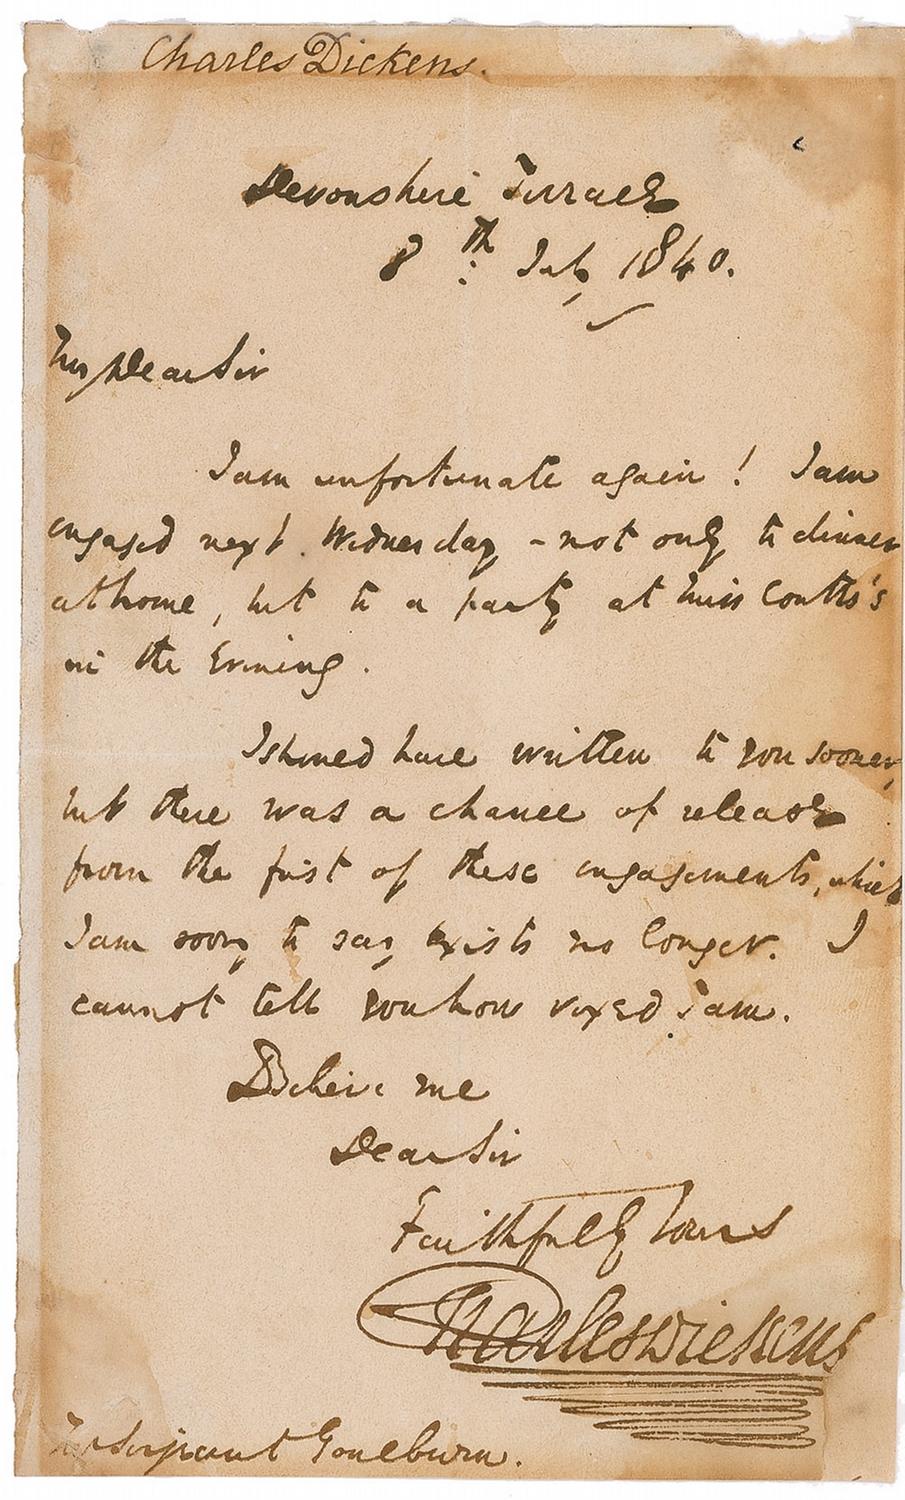 Charles Dickens.
Devonshire Terrace
8th July 1840.
My Dear Sir
I am unfortunate again! I am
engaged next Wednesday - not only to dinner
at home, but to a party at Miss Coutts's
in the Evening.
I should have written to you sooner,
but there was a chance of release
from the first of these engagements, which
I am sorry to say, exists no longer. I
cannot tell you how vexed I am.
Believe me
Dear Sir
Faithfully Yours
Charles Dickens
Mr Serjeant Goulburn.